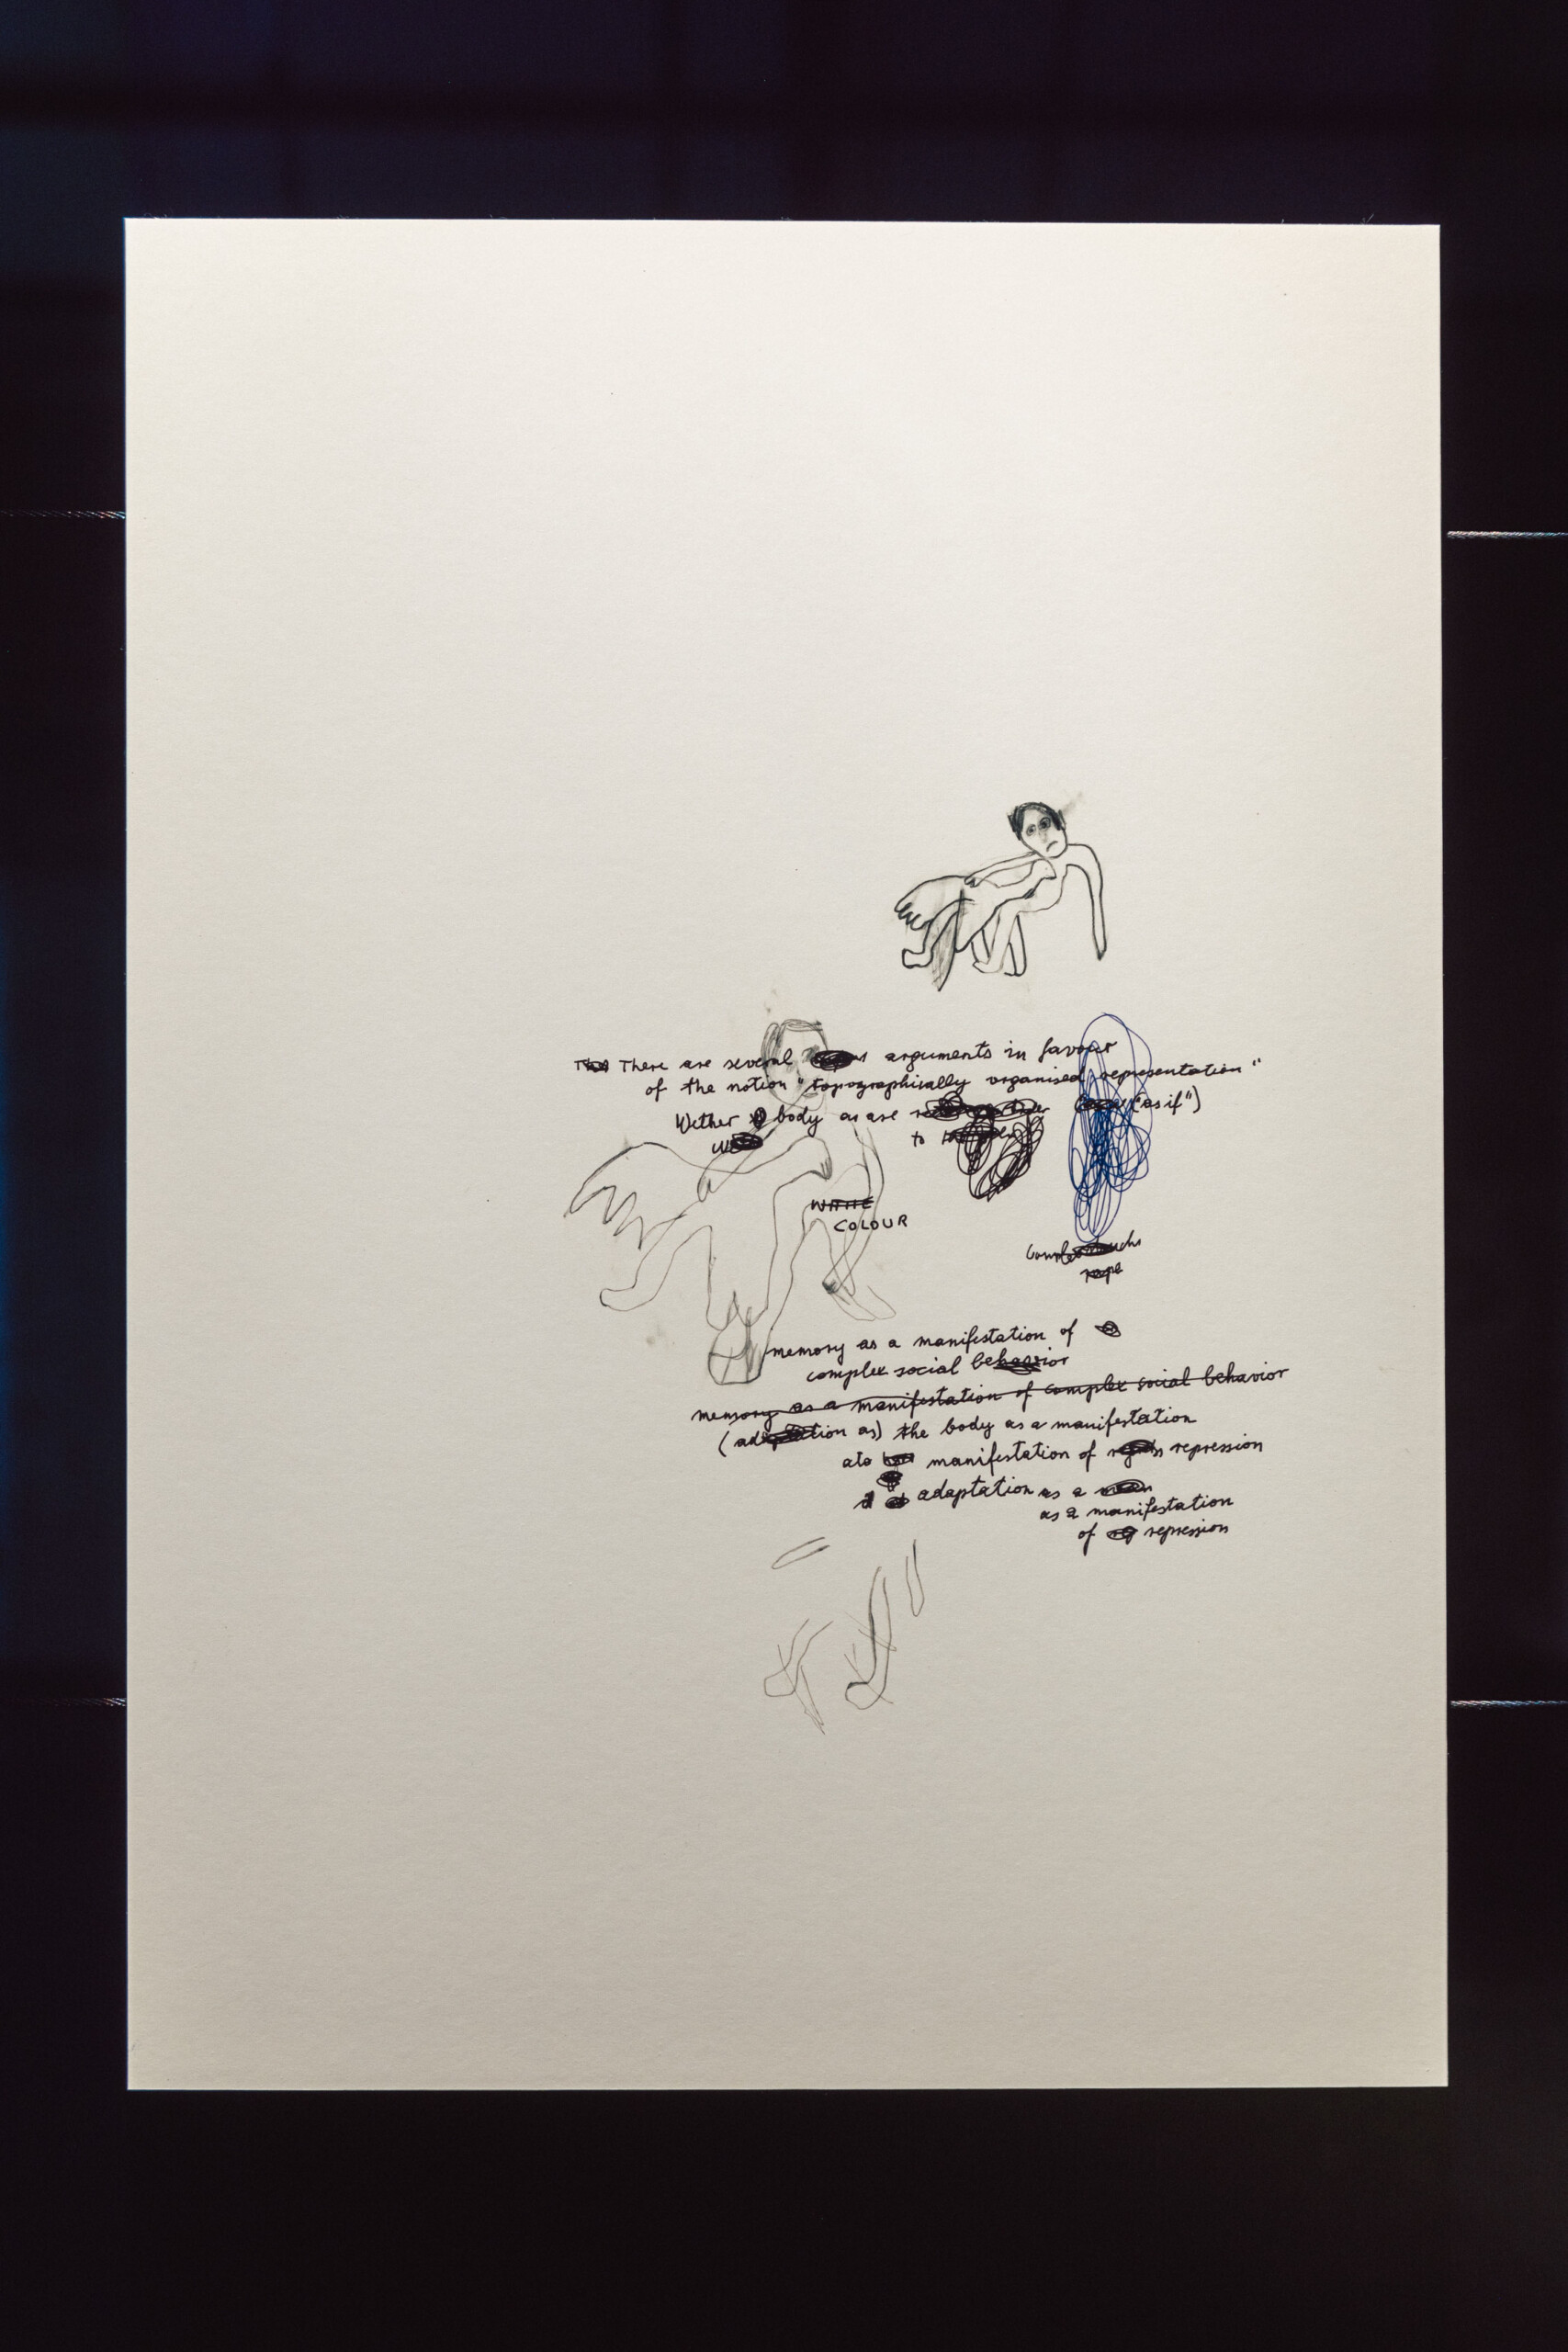 There are several arguments in favour
of the notion "topographically organised representation"
Wether body as are ("as if")
to
WHITE
COLOUR
rape
memory as a manifestation of
complex social behavior
memory as a manifestation of complex social behavior
(adaptation as) the body as a manifestation
manifestation of repression
adaptation as a
as a manifestation
of repression